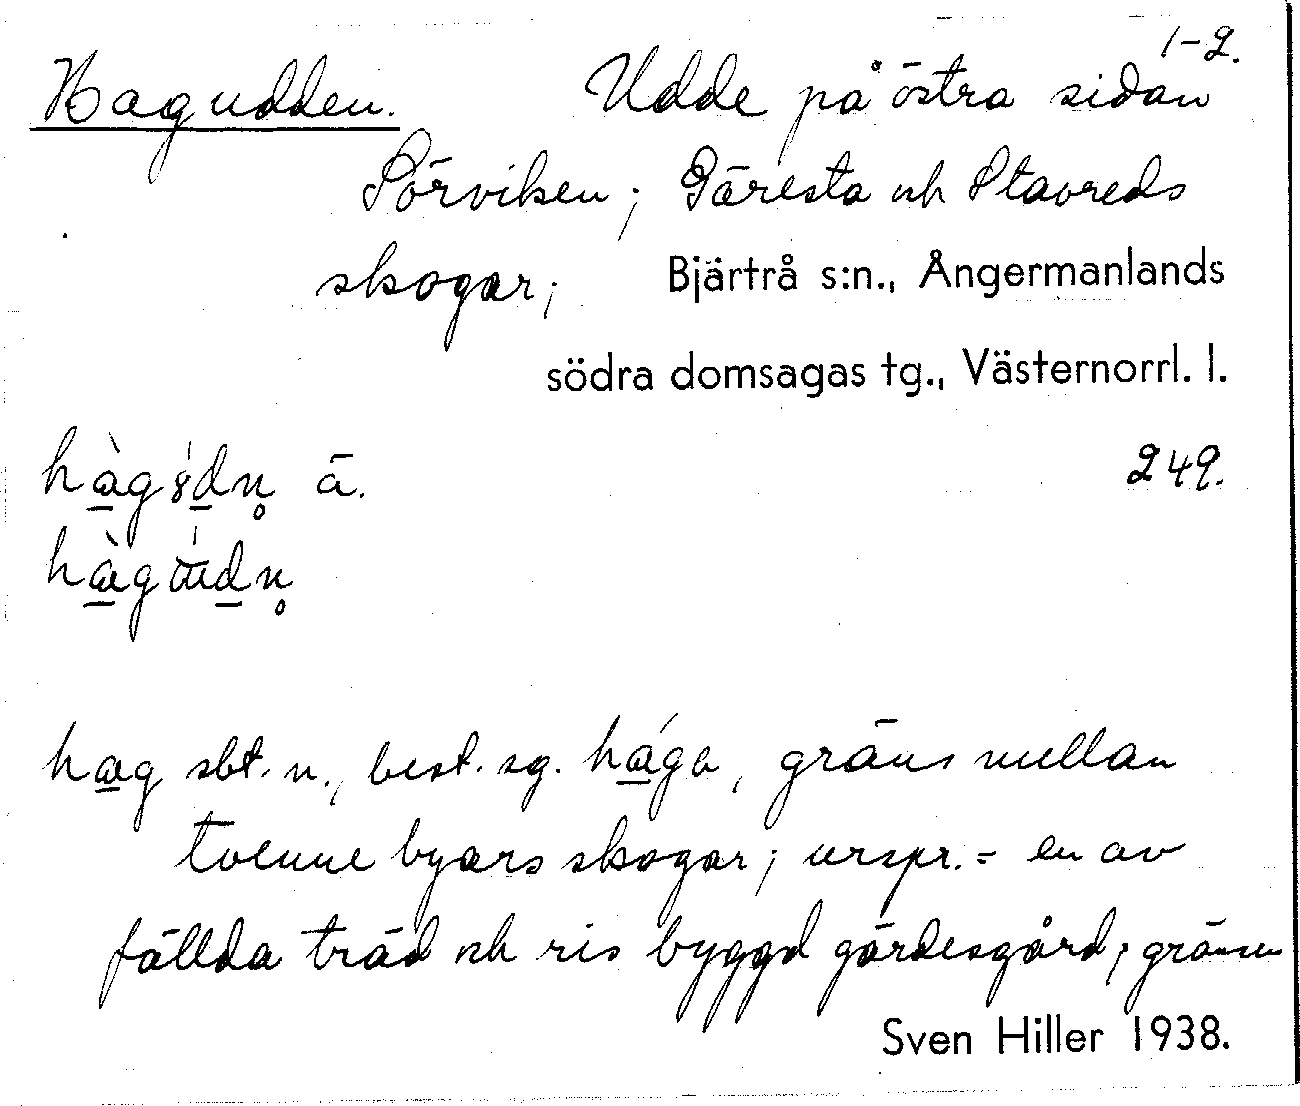 1-2.
Hagudden. Udde på östra sidan
Sörviken; Gäresta och Stavreds
skogar; Bjärtrå s:n., Ångermanlands
södra domsagas tg., Västernorrl. l.
249.
ä.
hag sbt. n., best. sg. hága, gräns mellan
tvenne byars skogar; urspr. = en av
fällda träd och ris byggd gärdesgård; gränsen
Sven Hiller 1938.